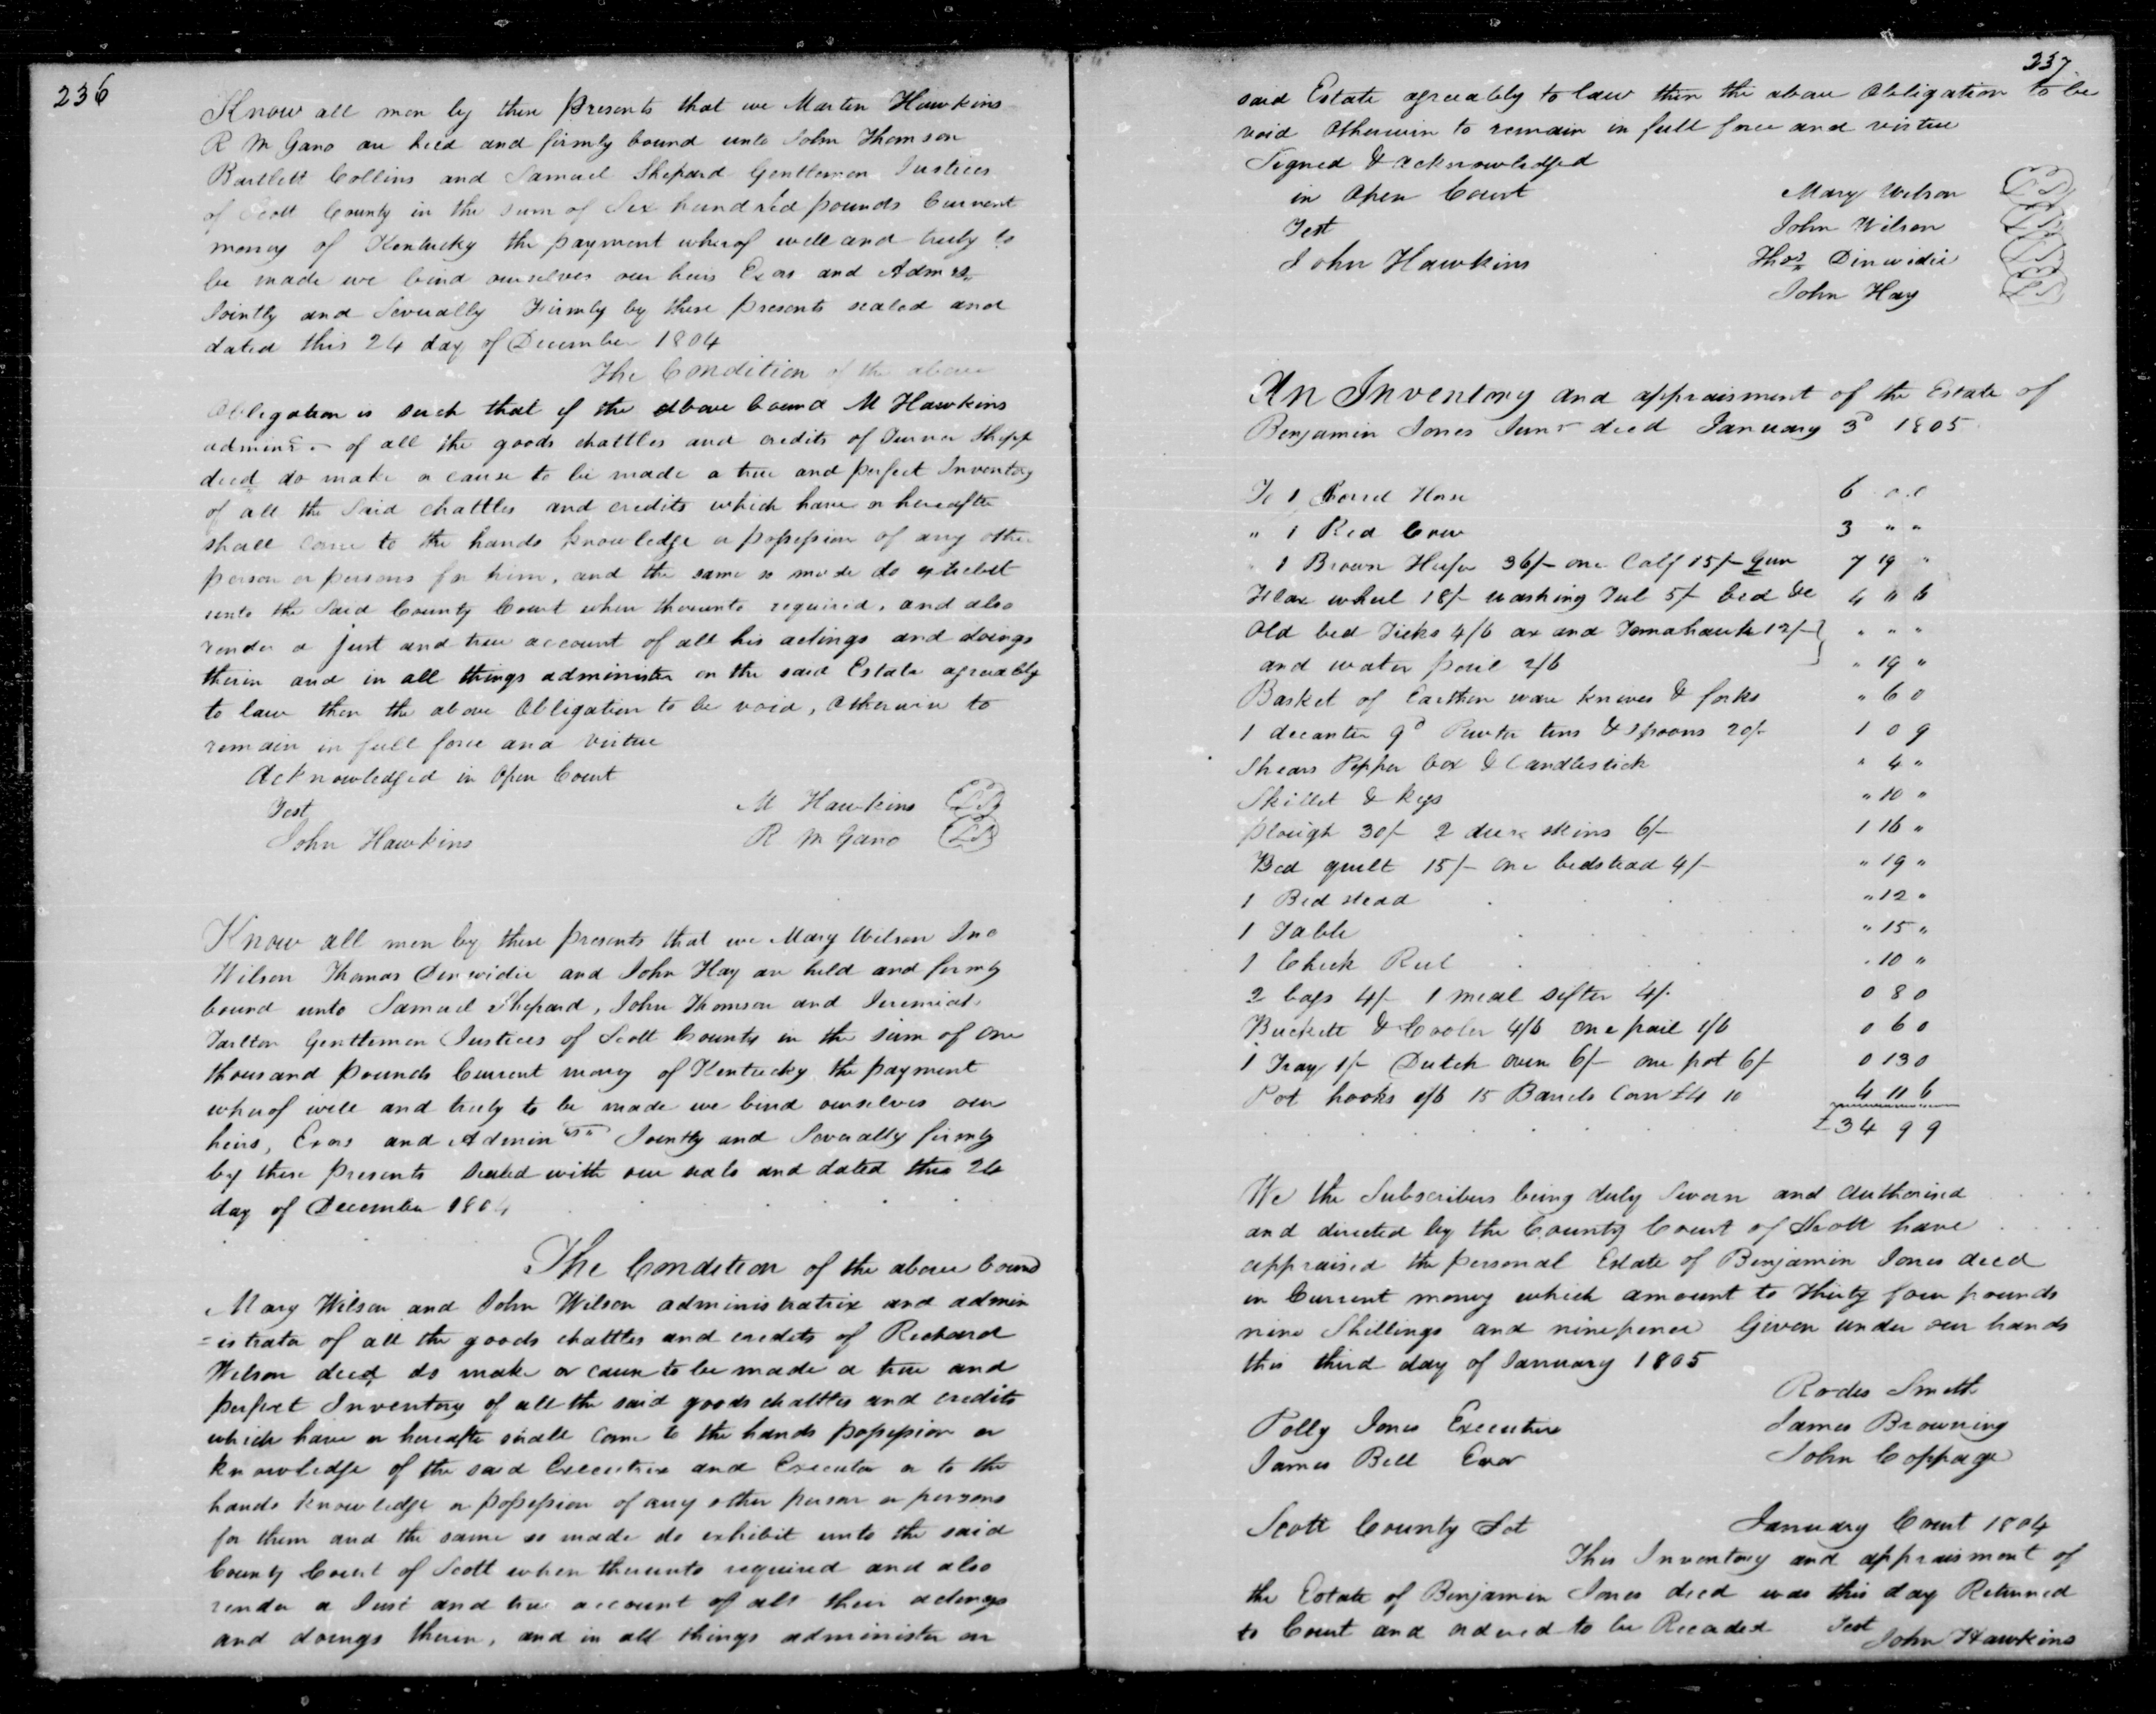 236
Know all men by these presents that we Martin Hawkins
R M Gano are held and firmly bound unto John Thomson
Bartlett Collins and Samuel Shepard Gentlemen Justices
of Scott County in the sum of Six hundred pounds Current
money of Kentucky the payment wherof well and truly to
be made we bind ourselves our heirs Exors and Admrs
Jointly and Severally Firmly by these presents sealed and
dated this 24 day of December 1804
The Condition of the above
Obligation is such that if the above bound M Hawkins
adminr of all the goods chattles and credits of Turner
decd do make or cause to be made a true and perfect Inventory
of all the Said chattles and credits which have or hereafter
shall come to the hands knowledge or possession of any other
person or persons for him, and the same so made do exhibit
unto the Said County Court when thereunto required, and also
render a just and true account of all his actings and doings
therin and in all things administer on the said Estate agreeably
to law then the above Obligation to be void, otherwise to
remain in full force and virtue
Acknowledged in Open Court
Test
M Hawkins LS
John Hawkins
R M Gano LS
Know all men by these presents that we Mary Wilson Jno
Wilson Thomas Dinwidie and John Hay are held and firmly
bound unto Samuel Shepard, John Thomson and Jeremiah
Tarlton Gentlemen Justices of Scott County in the sum of one
thousand pounds Current money of Kentucky the payment
wherof well and truly to be made we bind ourselves our
heirs, Exors and Admin Jointly and Severally firmly
by these presents sealed with our seals and dated this
day of December 1804
The Condition of the above bound
Mary Wilson and John Wilson administratrix and admin
=istrator of all the goods chattles and credits of Richard
Wilson decd do make or cause to be made a true and
perfect Inventory of all the said goods chattles and credits
which have or hereafter shall come to the hands possession or
knowledge of the said Executrix and Executor or to the
hands knowledge or possession of any other person or persons
for them and the same so made do exhibit unto the said
County Court of Scott when thereunto required and also
render a Just and true account of all their actings
and doings therein, and in all things administer on
237
said Estate agreeably to law then the above Obligation to be
void Otherwise to remain in full force and virtue
Signed & acknowledged
in Open Court
Mary Wilson LS
Test
John Wilson LS
John Hawkins
Thos Dinwidie LS
John Hay LS
An Inventory and appraisment of the Estate of
Benjamin Jones Junr decd January 3d 1805
To 1 Sorrel Horse 6 0 0
" 1 Red Cow 3 " "
" 1 Brown Heifer 36/- one Calf 15/- Gun 7 19 "
Flax wheel 18/- washing Tub 5/- bed &c 4 11 6
Old bed Ticks 4/6 ax and Tomahawk 12/- " " "
and water pail 2/6 " 19 "
Basket of Earthen ware knives & forks " 6 0
1 decanter 9d Pewter tins & Spoons 20/- 1 0 9
Shears Pepper box & Candlestick " 4 "
Skillet & kegs " 10 "
plough 30/- 2 deer skins 6/- 1 16 "
Bed quilt 15/- one bedstead 4/- " 19 "
1 Bed stead " 12 "
1 Table " 15 "
1 Check Reel " 10 "
2 bags 4/- 1 meal sifter 4/- 0 8 0
Buckett & Cooler 4/6 one pail 1/6 0 6 0
1 Tray 1/- Dutch oven 6/- one pot 6/ 0 13 0
Pot hooks 1/6 15 Barrels Corn £4 10 4 11 6
£34 9 9
We the Subscribers being duly Sworn and authorised
and directed by the County Court of Scott have
appraised the personal Estate of Benjamin Jones decd
in Current money which amount to thirty four pounds
nine Shillings and ninepence Given under our hands
this third day of January 1805
Rodes Smith
Polly Jones Executrix
James Browning
James Bell Exor
John Coppage
Scott County Sct January Court 1804
This Inventory and appraisment of
the Estate of Benjamin Jones decd was this day Returned
to Court and ordered to be Recorded Test
John Hawkins